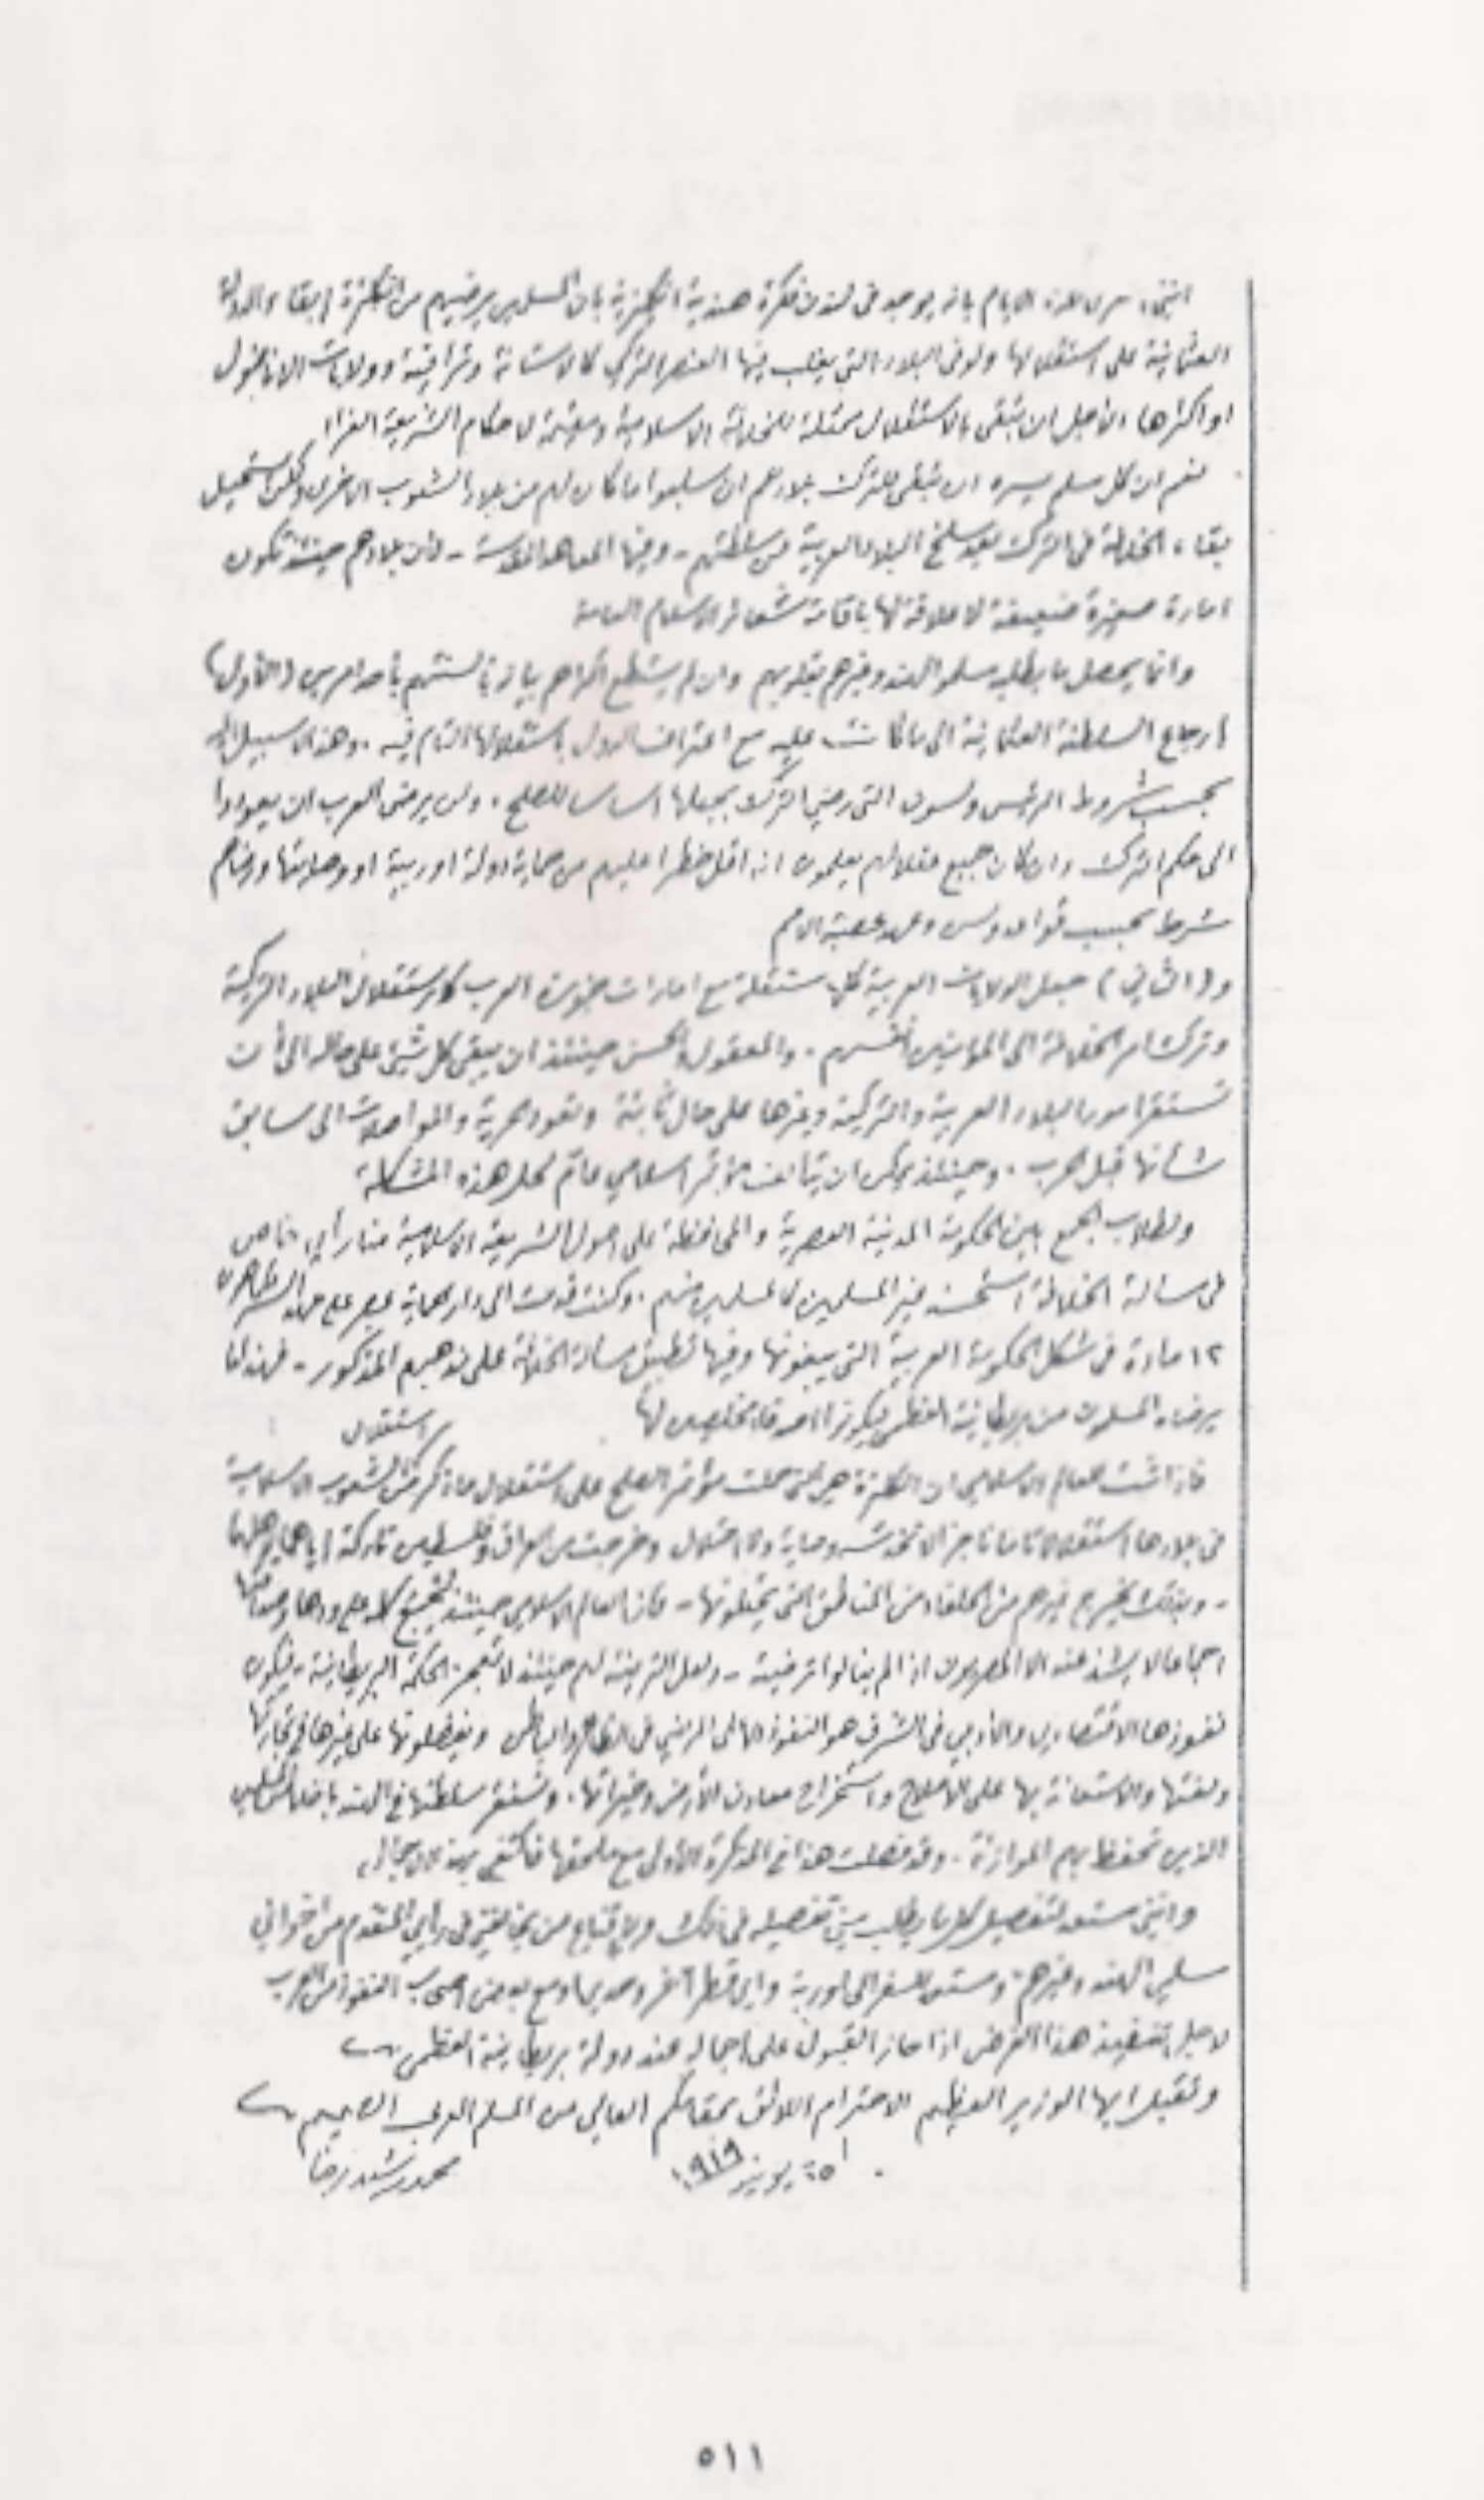 الايام بانه يوجد في لندن فكرة هندية انكليزية بان المسلمين يرضيهم من انكلترة ابقاء الدولة
العثمانية على استقلالها ولو في البلاد التي يغلب فيها العنصر التركي كالاستانة وتراقية وولايات الاناضول
او اكثرها لاجل ان تبقى بالاستقلال ممثلة للخلافة الاسلامية ومقيمة لاحكام الشريعة الغراء
نعم ان كل مسلم يسره ان تبقى للترك بلادهم ان سلبوا ما كان لهم من بلاد الشعوب الاخرى ولكن يستحيل
بقاء الخلافة في الترك بعد سلخ البلاد العربية من سلطتهم - وفيها المعاهد المقدسة - فان بلادهم حينئذ تكون
امارة صغيرة ضعيفة لا علاقة لها باقامة شعائر الاسلام العامة
وانما يحصل ما يطلبه مسلمو الهند وغيرهم بقلوبهم وان لم يستطع اكثرهم بيانه بألسنتهم بأحد امرين (الاول)
ارجاع السلطنة العثمانية الى ما كانت عليه مع اعتراف الدول باستقلالها التام فيه . وهذا لا سبيل اليه
بحسب شروط الرئيس ولسون التي رضي الترك بجعلها اساسا للصلح . ولن يرضى العرب ان يعودوا
الى حكم الترك وان كان جميع عقلائهم يعلمون انه اقل خطرا عليهم من حماية دولة اوربية او وصايتها ورضاهم
شرط بحسب قواعد ولسن وعهد عصبة الامم
و(الثاني) جعل الولايات العربية كلها مستقلة مع امارات جزيرة العرب كاستقلال البلاد التركية
وترك امر الخلافة الى المؤمنين انفسهم . والمعقول والحسن حينئذ ان يبقى كل شيء على حاله الى أن
تستقر امور البلاد العربية والتركية وغيرها على حال ثابتة وتعود الحرية والمواصلات الى سابق
شأنها قبل الحرب . وحينئذ يمكن ان يتألف مؤتمر اسلامي عام لحل هذه المشكلة
ولطلاب الجمع بين الحكومة المدنية العصرية والمحافظة على اصول الشريعة الاسلامية منا رأي خاص
في مسألة الخلافة استحسنه غير المسلمين كالمسلمين منهم . وكنت قدمت الى دار الحماية بمصر
١٢ مادة في شكل الحكومة العربية التي يبغونها وفيها تطبيق مسألة الخلافة على المذكور - فهذا ما
يرضاه المسلمون من بريطانية العظمى ليكونوا اصدقاء مخلصين لها
استقلال
فاذا ثبت للعالم الاسلامي ان انكلترة هي التي حملت مؤتمر الصلح على استقلال ما ذكر من الشعوب الاسلامية
في بلادها استقلالا تاما ناجزا لا تحت وصاية ولا احتلال وخرجت من العراق وفلسطين تاركة اياهما لاهلهما
- وبذلك يخرج غيرهم من الحلفاء من المناطق التي يحتلونها - فان العالم الاسلامي حينئذ يجمع كله على ودها
اجماعا لا يشذ عنه الا المصريون اذا لم ينالوا ترضية - ولعل الترضية لهم حينئذ لا تعجز الحكمة البريطانية - فيكون
نفوذها الاقتصادي والادبي في الشرق هو النفوذ العالي المرضي في الظاهر والباطن ويفضلونها على غيرها في تجارتها
ولغتها والاستعانة بها على الاصلاح واستخراج معادن الأرض وخيراتها . وتستقر سلطتها في الهند باخلاص المسلمين
الذين تحفظ بهم الموازنة . وقد فصلت هذا في المذكرة الأولى مع ملحقها فاكتفي بهذا الاجمال
وانني مستعد لتفصيل كل ما يطلب مني تفصيله في ذلك ولاقناع من في رأيي المتقدم من اخواني
مسلمي الهند وغيرهم ومستعد للسفر الى اوربة واي قطر آخر وحدي او مع بعض اصحاب النفوذ من العرب
لاجل تنفيذ هذا الغرض اذا حاز القبول على اجماله عند دولة بريطانية العظمى
وتقبل ايها الوزير العظيم الاحترام اللائق بمقامكم العالي من المسلم العربي الصميم
يونيو ١٩١٩
محمد رشيد رضا
٥١١